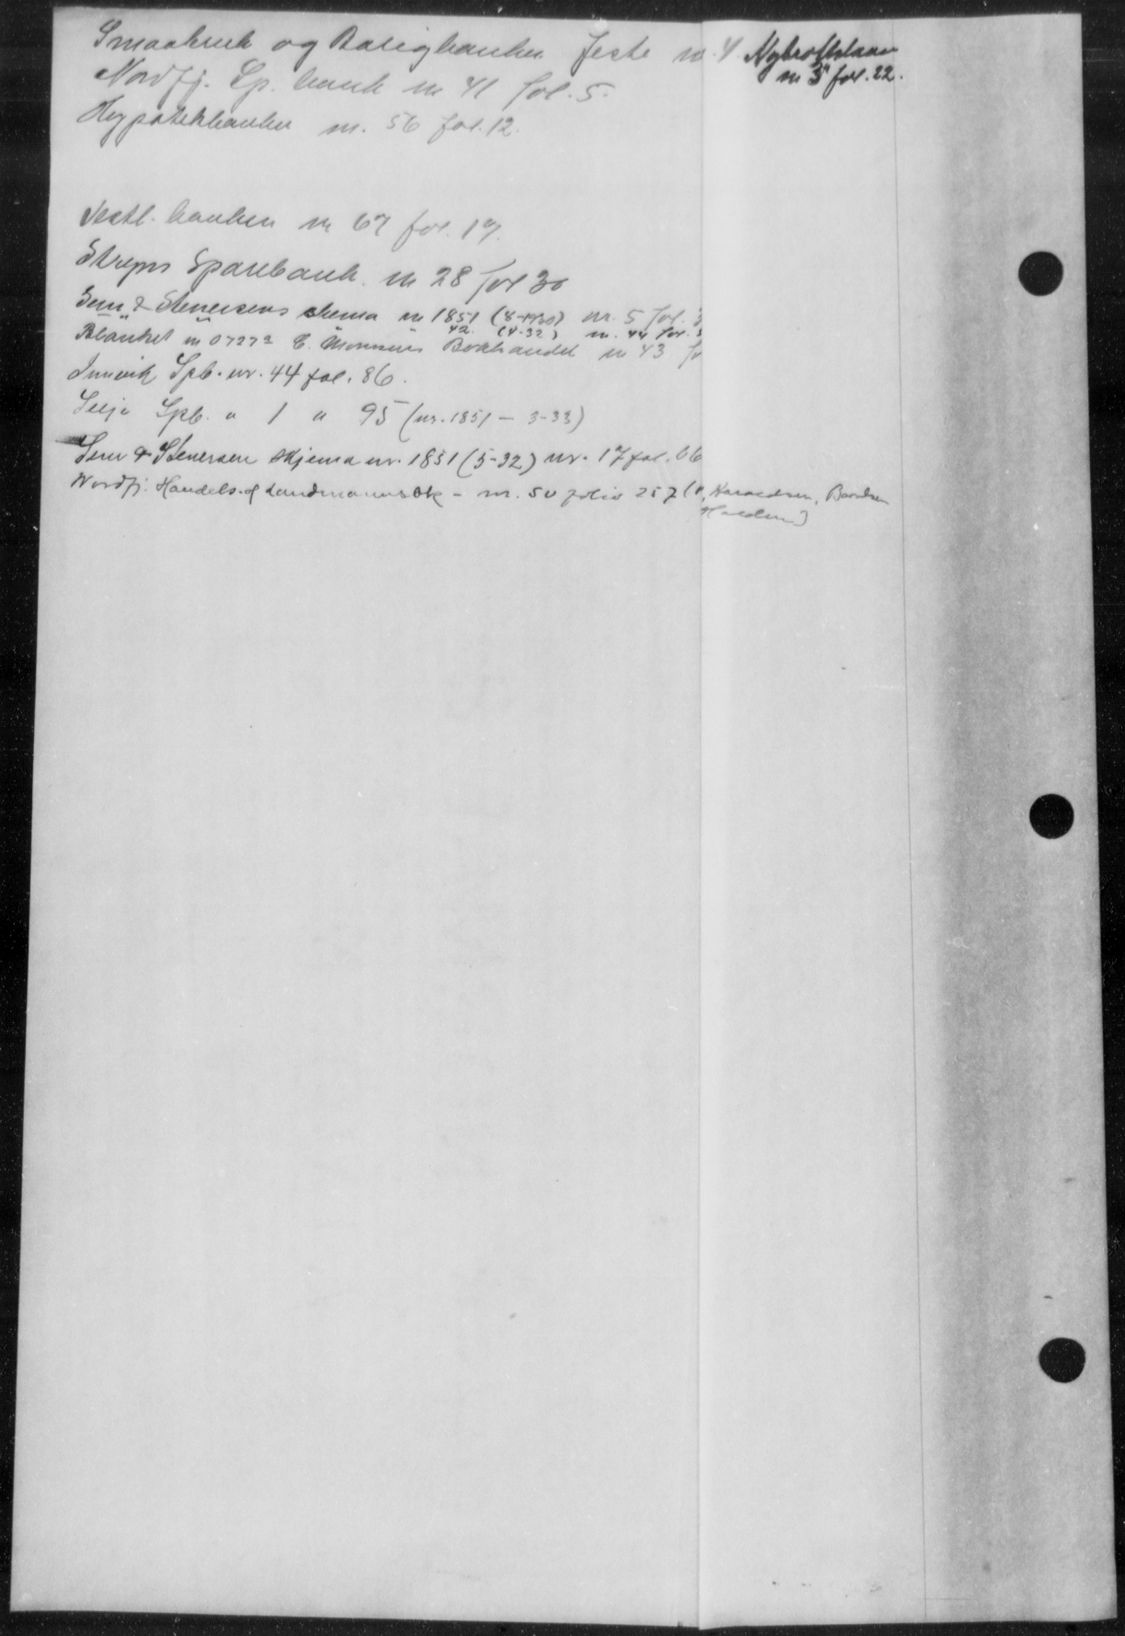 Smaabruk og Boligbanken feste nr. 4 Nybrottslaan
nr 5 fol. 22.
Nordfj. Sp. bank nr 41 fol. 5.
Hypotekbanken nr. 56 fol. 12.
Vestl. banken nr 67 fol. 17.
Stryns Sparebank nr 28 fol 30
Sem & Stenersens skema nr 1851 (8-1930) nr. 5 fol.
" " " 42. (4-32) nr. 44 fol.
Blanket nr 07272 C. Monsens Bokhandel nr 43
Innvik Spb. nr. 44 fol. 86.
Selje Spb. " 1 " 95 (nr. 1851 - 3-33)
Sem & Stenersen skjema nr. 1851 (5-32) nr. 17 fol. 66
Nordfj. Handels- og Landmannsbk - nr. 50 folio 257 ( Haraldsen,
Halden)